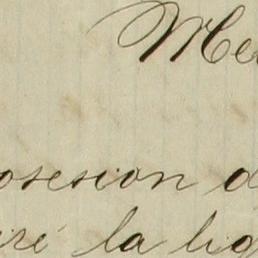 Me
osesion d
ré la lig